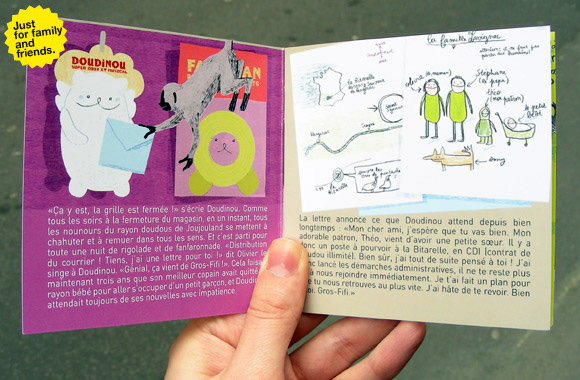 Just
for family
and
friends.
DOUDINOU
SUPER DOUX ET MUSICAL
«Ça y est, la grille est fermée !» s'écrie Doudinou. Comme
tous les soirs à la fermeture du magasin, en un instant, tous
les nounours du rayon doudous de Joujouland se mettent à
chahuter et à remuer dans tous les sens. Et c'est parti pour
toute une nuit de rigolade et de fanfaronnade. «Distribution
du courrier ! Tiens, j'ai une lettre pour toi !» dit Olivier le
singe à Doudinou. «Génial, ça vient de Gros-Fifi.». Cela faisait
maintenant trois ans que son meilleur copain avait quitté
rayon bébé pour aller s'occuper d'un petit garçon, et Doudin
attendait toujours de ses nouvelles avec impatience.
la famille
Stéphane
(le papa)
théo
(mon patron)
le petit
La lettre annonce ce que Doudinou attend depuis bien
longtemps : «Mon cher ami, j'espère que tu vas bien. Mon
adorable patron, Théo, vient d'avoir une petite sœur. Il y a
donc un poste à pourvoir à la Bitarelle, en CDI (contrat de
oudou illimité). Bien sûr, j'ai tout de suite pensé à toi ! J'ai
onc lancé les démarches administratives, il ne te reste plus
à nous rejoindre immédiatement. Je t'ai fait un plan pour
e tu nous retrouves au plus vite. J'ai hâte de te revoir. Bien
oi. Gros-Fifi.»